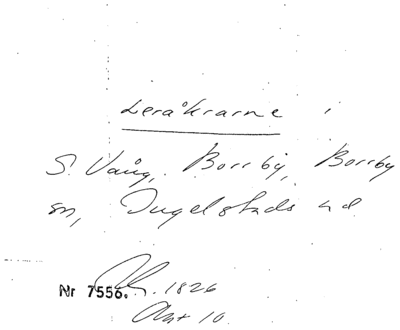 Leråkrarne i
S. Vång, Borrby, Borrby
sn, Ingelstads hd
Nr 7556. 1826
Akt 10